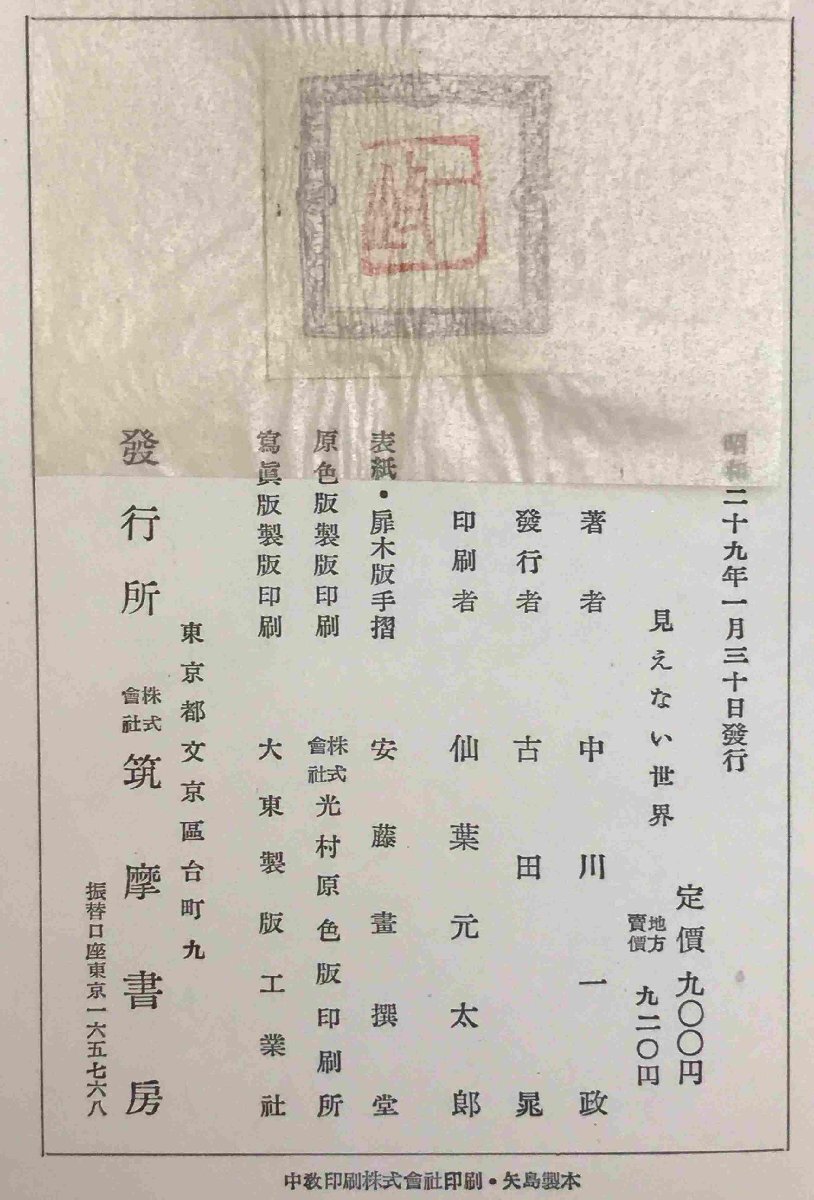 昭和二十九年一月三十日發行
見えない世界
定價 九〇〇円
地方賣價 九二〇円
著者 中川一政
發行者 古田晁
印刷者 仙葉元太郎
表紙・扉木版手摺 安藤畫撰堂
原色版製版印刷 株式會社光村原色版印刷所
寫眞版製版印刷 大東製版工業社
東京都文京區台町九
發行所 株式會社筑摩書房
振替口座東京一六五七六八
中敎印刷株式會社印刷・矢島製本